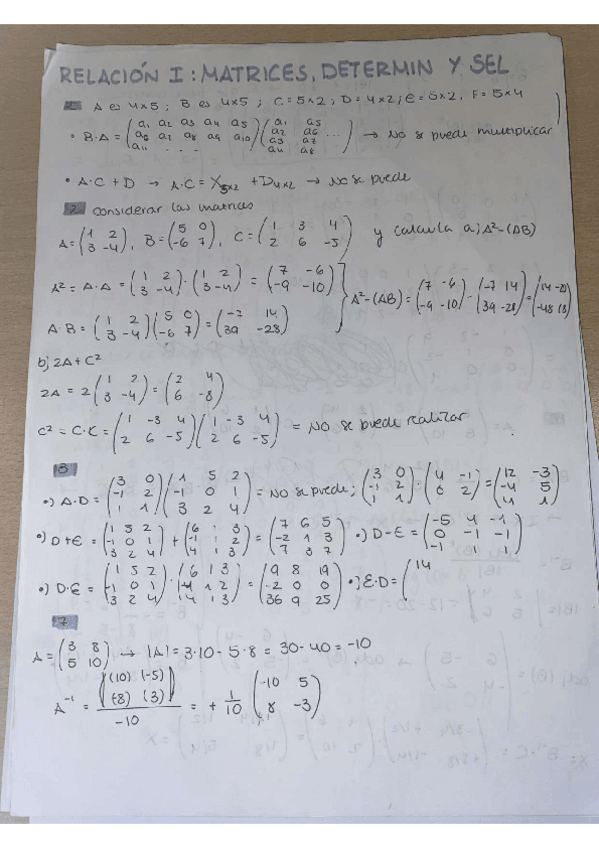 RELACIÓN I: MATRICES, DETERMIN Y SEL
A es 4x5; B es 4x5; C=5x2; D=4x2; E=5x2, F=5x4
= B·A = (a₁ a₂ a₃ a₄ a₅ / a₆ a₇ a₈ a₉ a₁₀ / a₁₁ ...)(a₁ a₅ / a₂ a₆ ... / a₃ a₇ / a₄ a₈) → No se puede multiplicar
• A·C + D → A·C = X₅ₓ₂ + D₄ₓ₂ → No se puede
2 considerar las matrices
A=(1 2 / 3 -4), B=(5 0 / -6 7), C=(1 3 4 / 2 6 -5) y calcula a) A²-(AB)
A² = A·A = (1 2 / 3 -4)·(1 2 / 3 -4) = (7 -6 / -9 -10)
A·B = (1 2 / 3 -4)(5 0 / -6 7) = (-7 14 / 39 -28)
A²-(AB) = (7 -6 / -9 -10) - (-7 14 / 39 -28) = (14 -20 / -48 18)
b) 2A+C²
2A = 2(1 2 / 3 -4) = (2 4 / 6 -8)
C² = C·C = (1 -3 4 / 2 6 -5)(1 -3 4 / 2 6 -5) = No se puede realizar
18
•) A·D = (3 0 / -1 2 / 1 1)(1 5 2 / -1 0 1 / 3 2 4) = No se puede; (3 0 / -1 2 / 1 1)·(4 -1 / 0 2) = (12 -3 / -4 5 / 4 1)
•) D+E = (1 5 2 / -1 0 1 / 3 2 4) + (6 1 3 / -1 1 2 / 4 1 3) = (7 6 5 / -2 1 3 / 7 3 7) •) D-E = (-5 4 -1 / 0 -1 -1 / -1 1)
•) D·E = (1 5 2 / -1 0 1 / 3 2 4)·(6 1 3 / -1 1 2 / 4 1 3) = (9 8 19 / -2 0 0 / 36 9 25) •) E·D = (14
17
A = (3 8 / 5 10) → |A| = 3·10 - 5·8 = 30-40 = -10
A⁻¹ = ((10) (-5) / (-8) (3)) / -10 = + 1/10 (-10 5 / 8 -3)